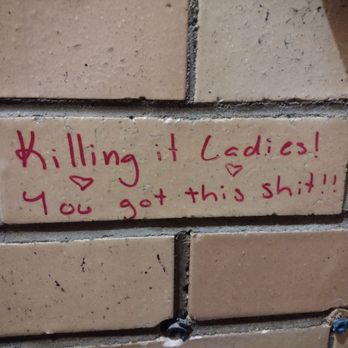 Killing it Ladies!
You got this shit!!